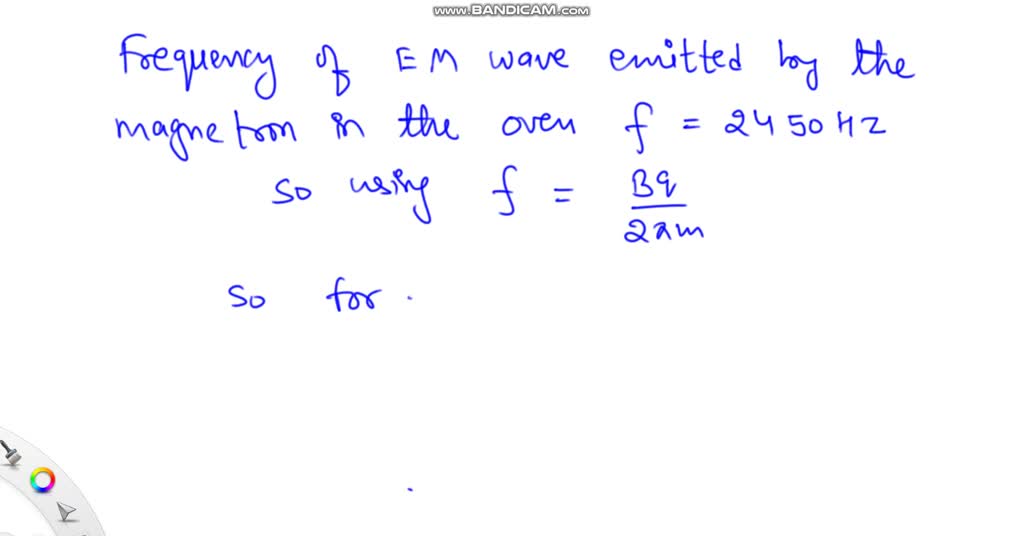 www.BANDICAM.com
Frequency of EM wave emitted by the
magnetron in the oven f = 2450 HZ
So using f = Bq / 2πm
So for